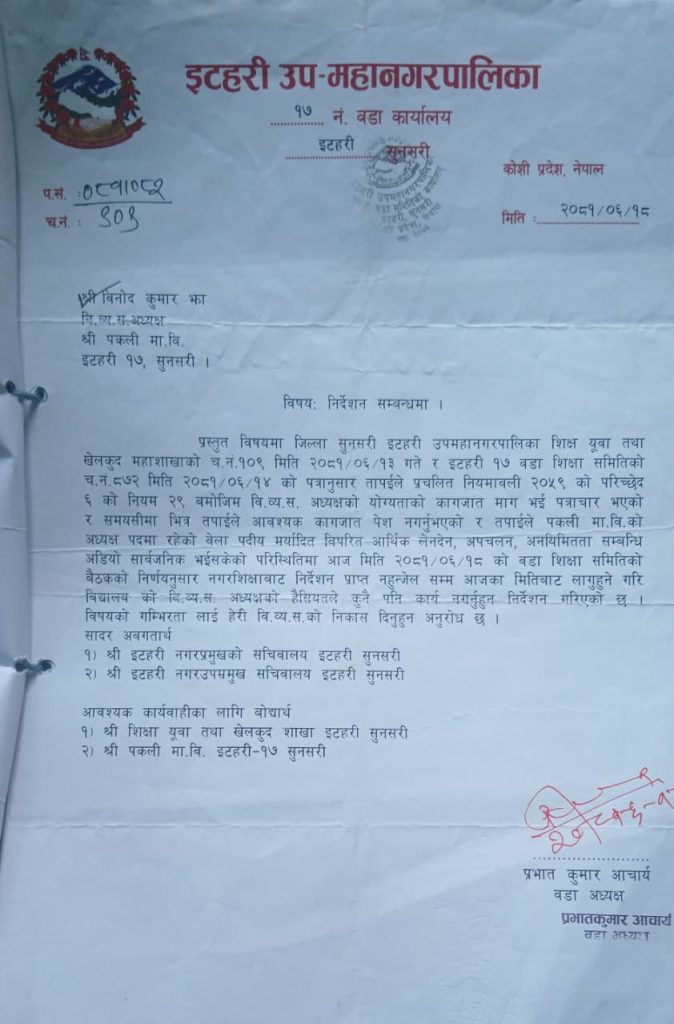 इटहरी उप-महानगरपालिका
१७ नं. वडा कार्यालय
इटहरी सुनसरी
कोशी प्रदेश, नेपाल
प.सं. : ०८१/०८२
च.नं. : ३०३
मिति : २०८१/०६/१८
श्री विनोद कुमार झा
वि.व्य.स.अध्यक्ष
श्री पकली मा.वि.
इटहरी १७, सुनसरी ।
विषय: निर्देशन सम्बन्धमा ।
प्रस्तुत विषयमा जिल्ला सुनसरी इटहरी उपमहानगरपालिका शिक्ष यूवा तथा
खेलकुद महाशाखाको च.नं.१०९ मिति २०८१/०६/१३ गते र इटहरी १७ वडा शिक्षा समितिको
च.नं.८७२ मिति २०८१/०६/१४ को पत्रानुसार तापईले प्रचलित नियमावली २०५९ को परिच्छेद
६ को नियम २९ बमोजिम वि.व्य.स. अध्यक्षको योग्यताको कागजात माग भई पत्राचार भएको
र समयसीमा भित्र तपाईले आवश्यक कागजात पेश नगर्नुभएको र तपाईले पकली मा.वि.को
अध्यक्ष पदमा रहेको वेला पदीय मर्यादित विपरित आर्थिक लेनदेन, अपचलन, अनयिमितता सम्बन्धि
अडियो सार्वजनिक भईसकेको परिस्थितिमा आज मिति २०८१/०६/१८ को वडा शिक्षा समितिको
बैठकको निर्णयनुसार नगरशिक्षाबाट निर्देशन प्राप्त नहुन्जेल सम्म आजका मितिबाट लागुहुने गरि
विद्यालय को वि.व्य.स. अध्यक्षको हैसियतले कुनै पनि कार्य नगर्नुहुन निर्देशन गरिएको छ ।
विषयको गम्भिरता लाई हेरी वि.व्य.स.को निकास दिनुहुन अनुरोध छ ।
सादर अवगतार्थ
१) श्री इटहरी नगरप्रमुखको सचिवालय इटहरी सुनसरी
२) श्री इटहरी नगरउपप्रमुख सचिवालय इटहरी सुनसरी
आवश्यक कार्यवाहीका लागि वोद्यार्थ
१) श्री शिक्षा यूवा तथा खेलकुद शाखा इटहरी सुनसरी
२) श्री पकली मा.वि. इटहरी-१७ सुनसरी
प्रभात कुमार आचार्य
वडा अध्यक्ष
प्रभातकुमार आचार्य
वडा अध्यक्ष